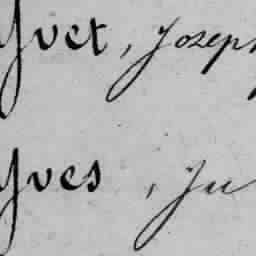 Yvet, Joseph
Yves, Ju